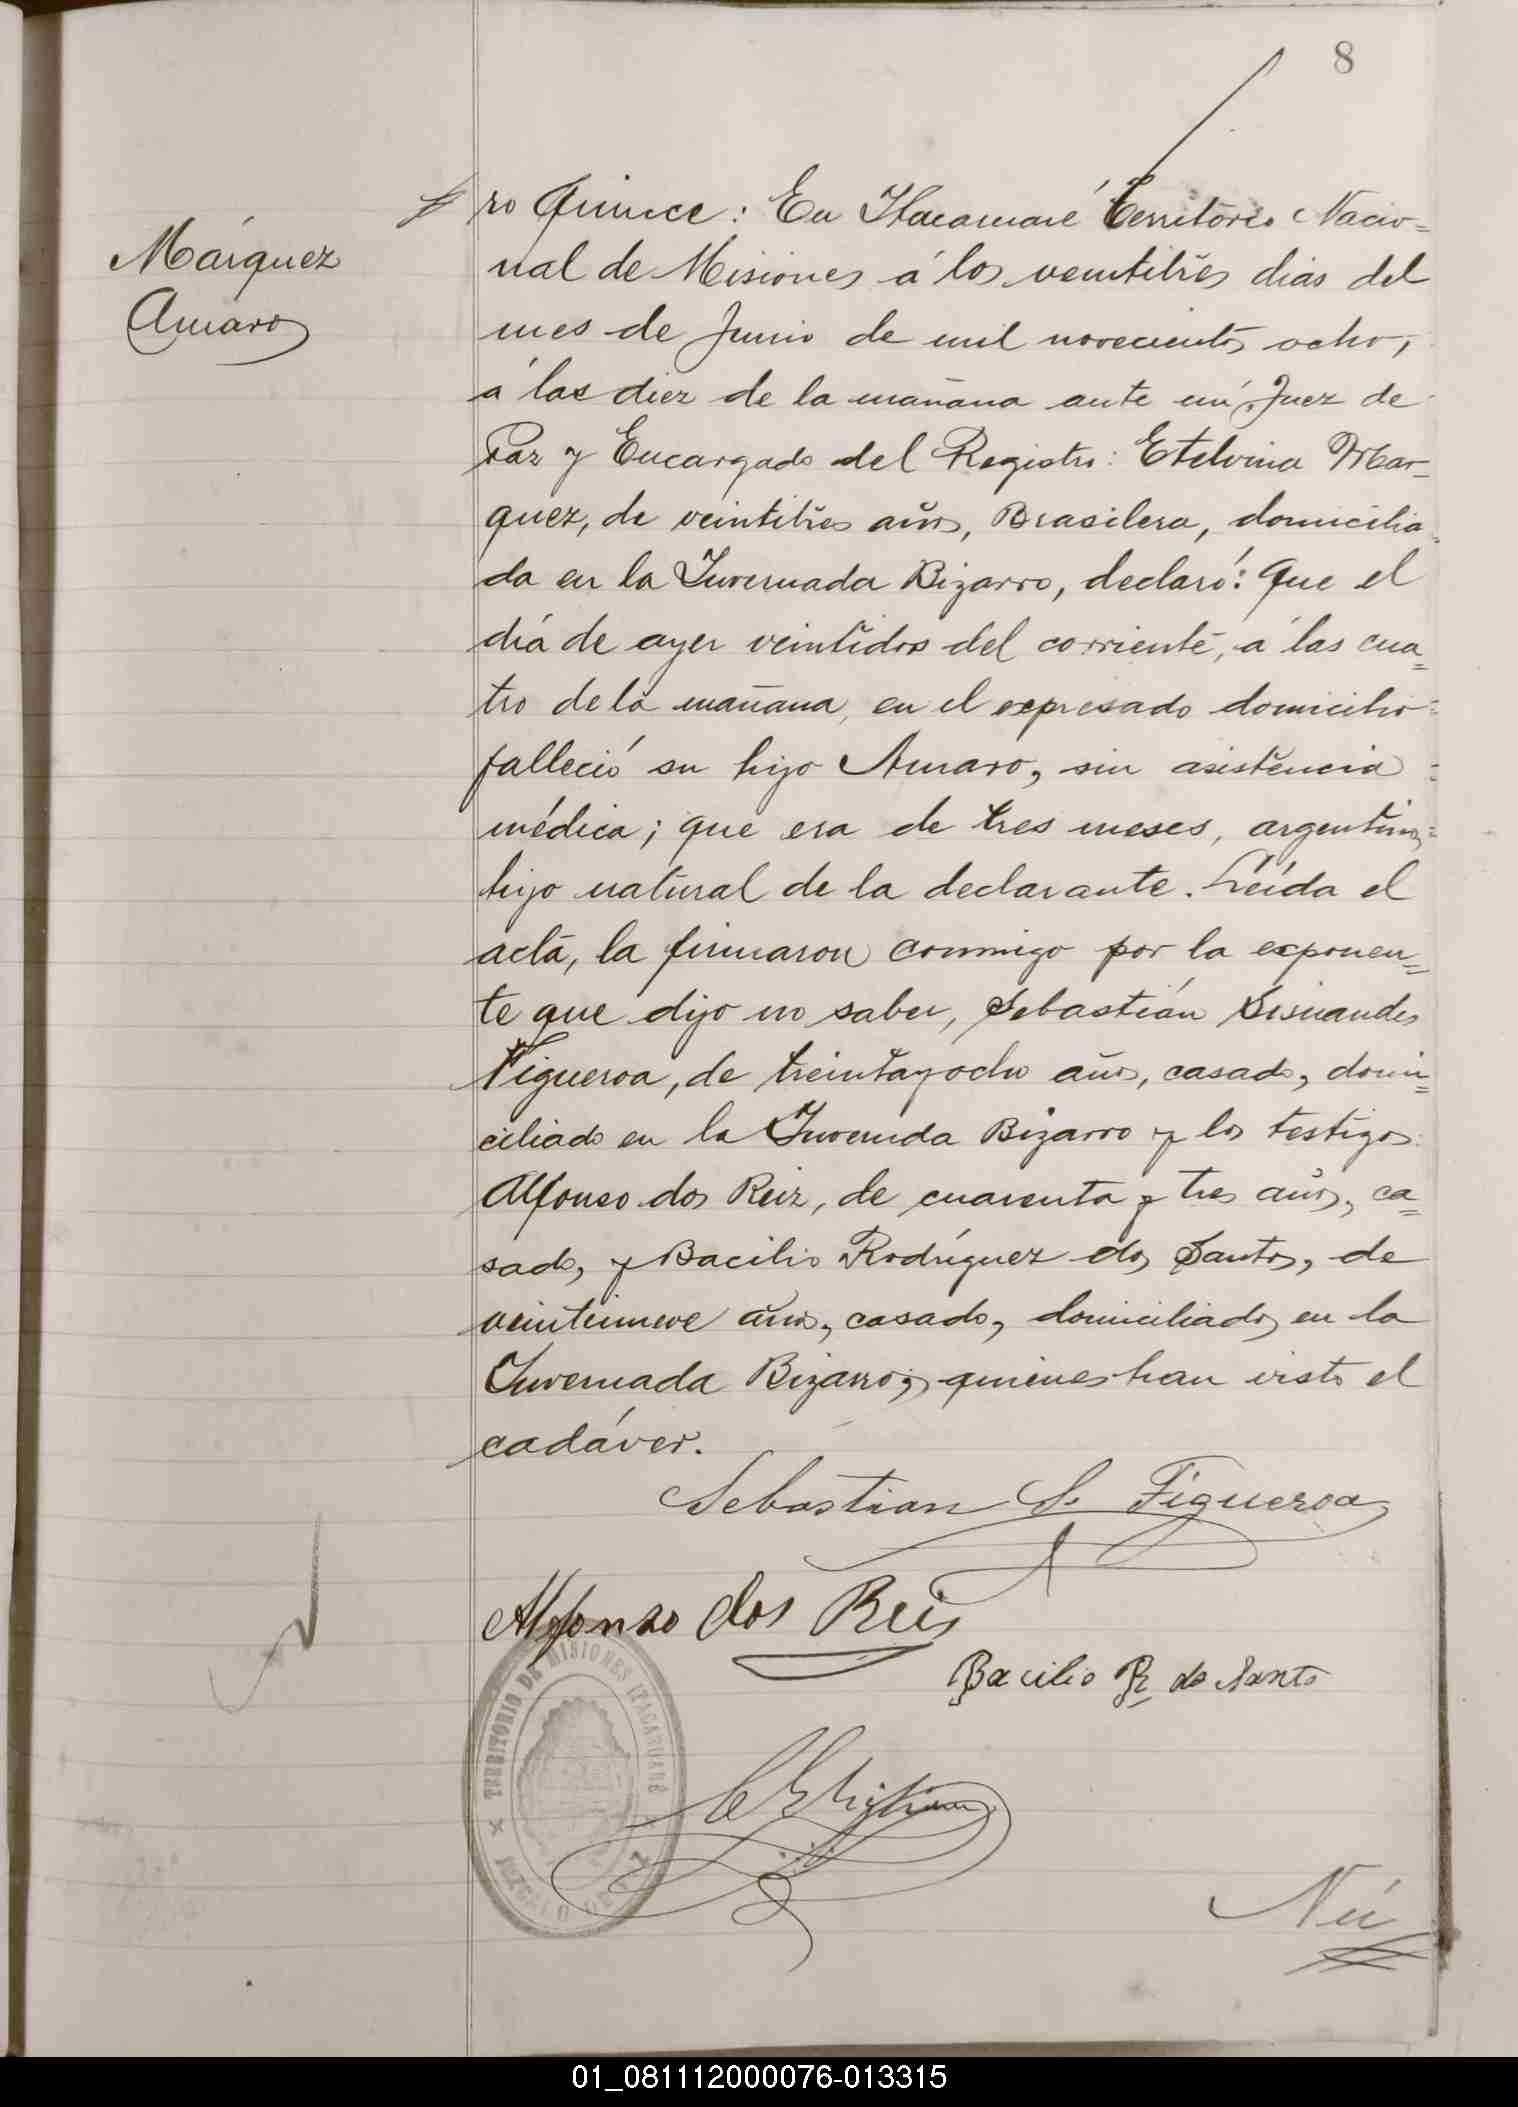 8
Márquez
Amaro
ro Quince: En Itacaruaré Territorio Nacio=
nal de Misiones á los veintitres dias del
mes de Junio de mil novecientos ocho,
á las diez de la mañana ante mí, Juez de
Paz y Encargado del Registro: Etelvina Mar=
quez, de veintitres años, Brasilera, domicilia=
da en la Invernada Bizarro, declaró: Que el
día de ayer veintidos del corriente, á las cua=
tro de la mañana, en el expresado domicilio=
falleció su hijo Amaro, sin asistencia=
médica; que era de tres meses, argentino,=
hijo natural de la declarante. Leída el
acta, la firmaron conmigo por la exponen=
te que dijo no saber, Sebastián Sisnandes
Figueroa, de treintayocho años, casado, domi=
ciliado en la Invernda Bizarro y los testigos:
Alfonso dos Reiz, de cuarenta y tres años, ca=
sado, y Bacilio Rodríguez dos Santos, de
veintinueve años, casado, domiciliados en la
Invernada Bizarro; quienes han visto el
cadáver.
Sebastian S. Figueroa
Alfonso dos Reis
Bacilio R. do Santo
TERRITORIO DE MISIONES ITACARUARÉ
JUZGADO DE PAZ
Nú
01_081112000076-013315